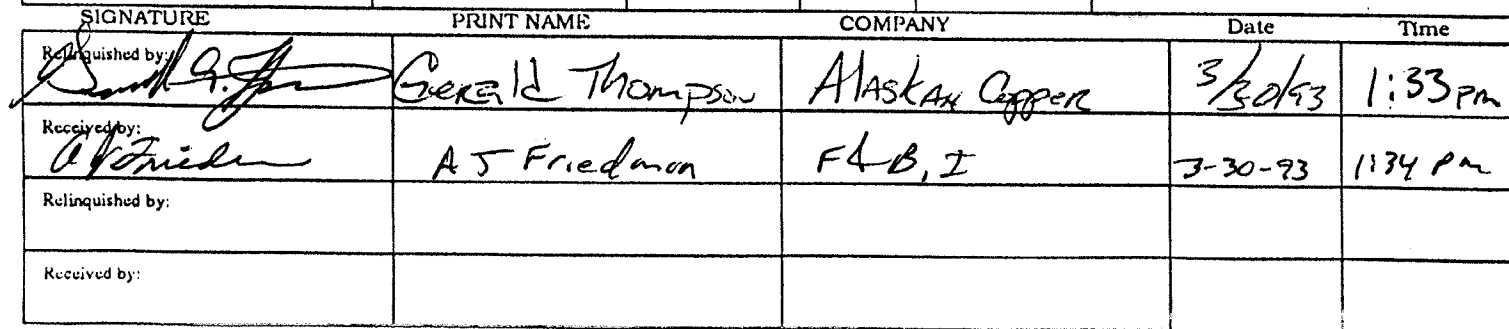 SIGNATURE PRINT NAME COMPANY Date Time
Relinquished by: Gerald Thompson Alaskan Copper 3/30/93 1:33 pm
Received by: A J Friedman A J Friedman F & B, I 3-30-93 1:34 pm
Relinquished by:
Received by: